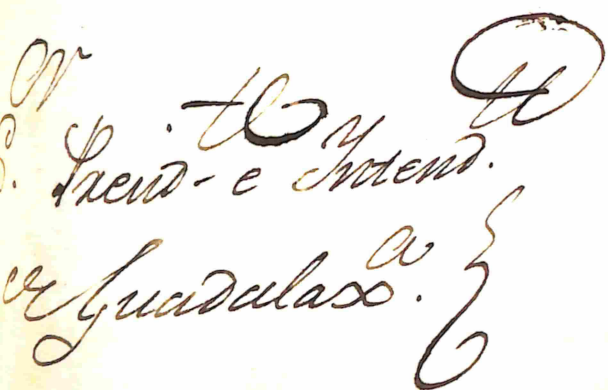 S.or Presid.te e Intend.te
de Guadalax.a